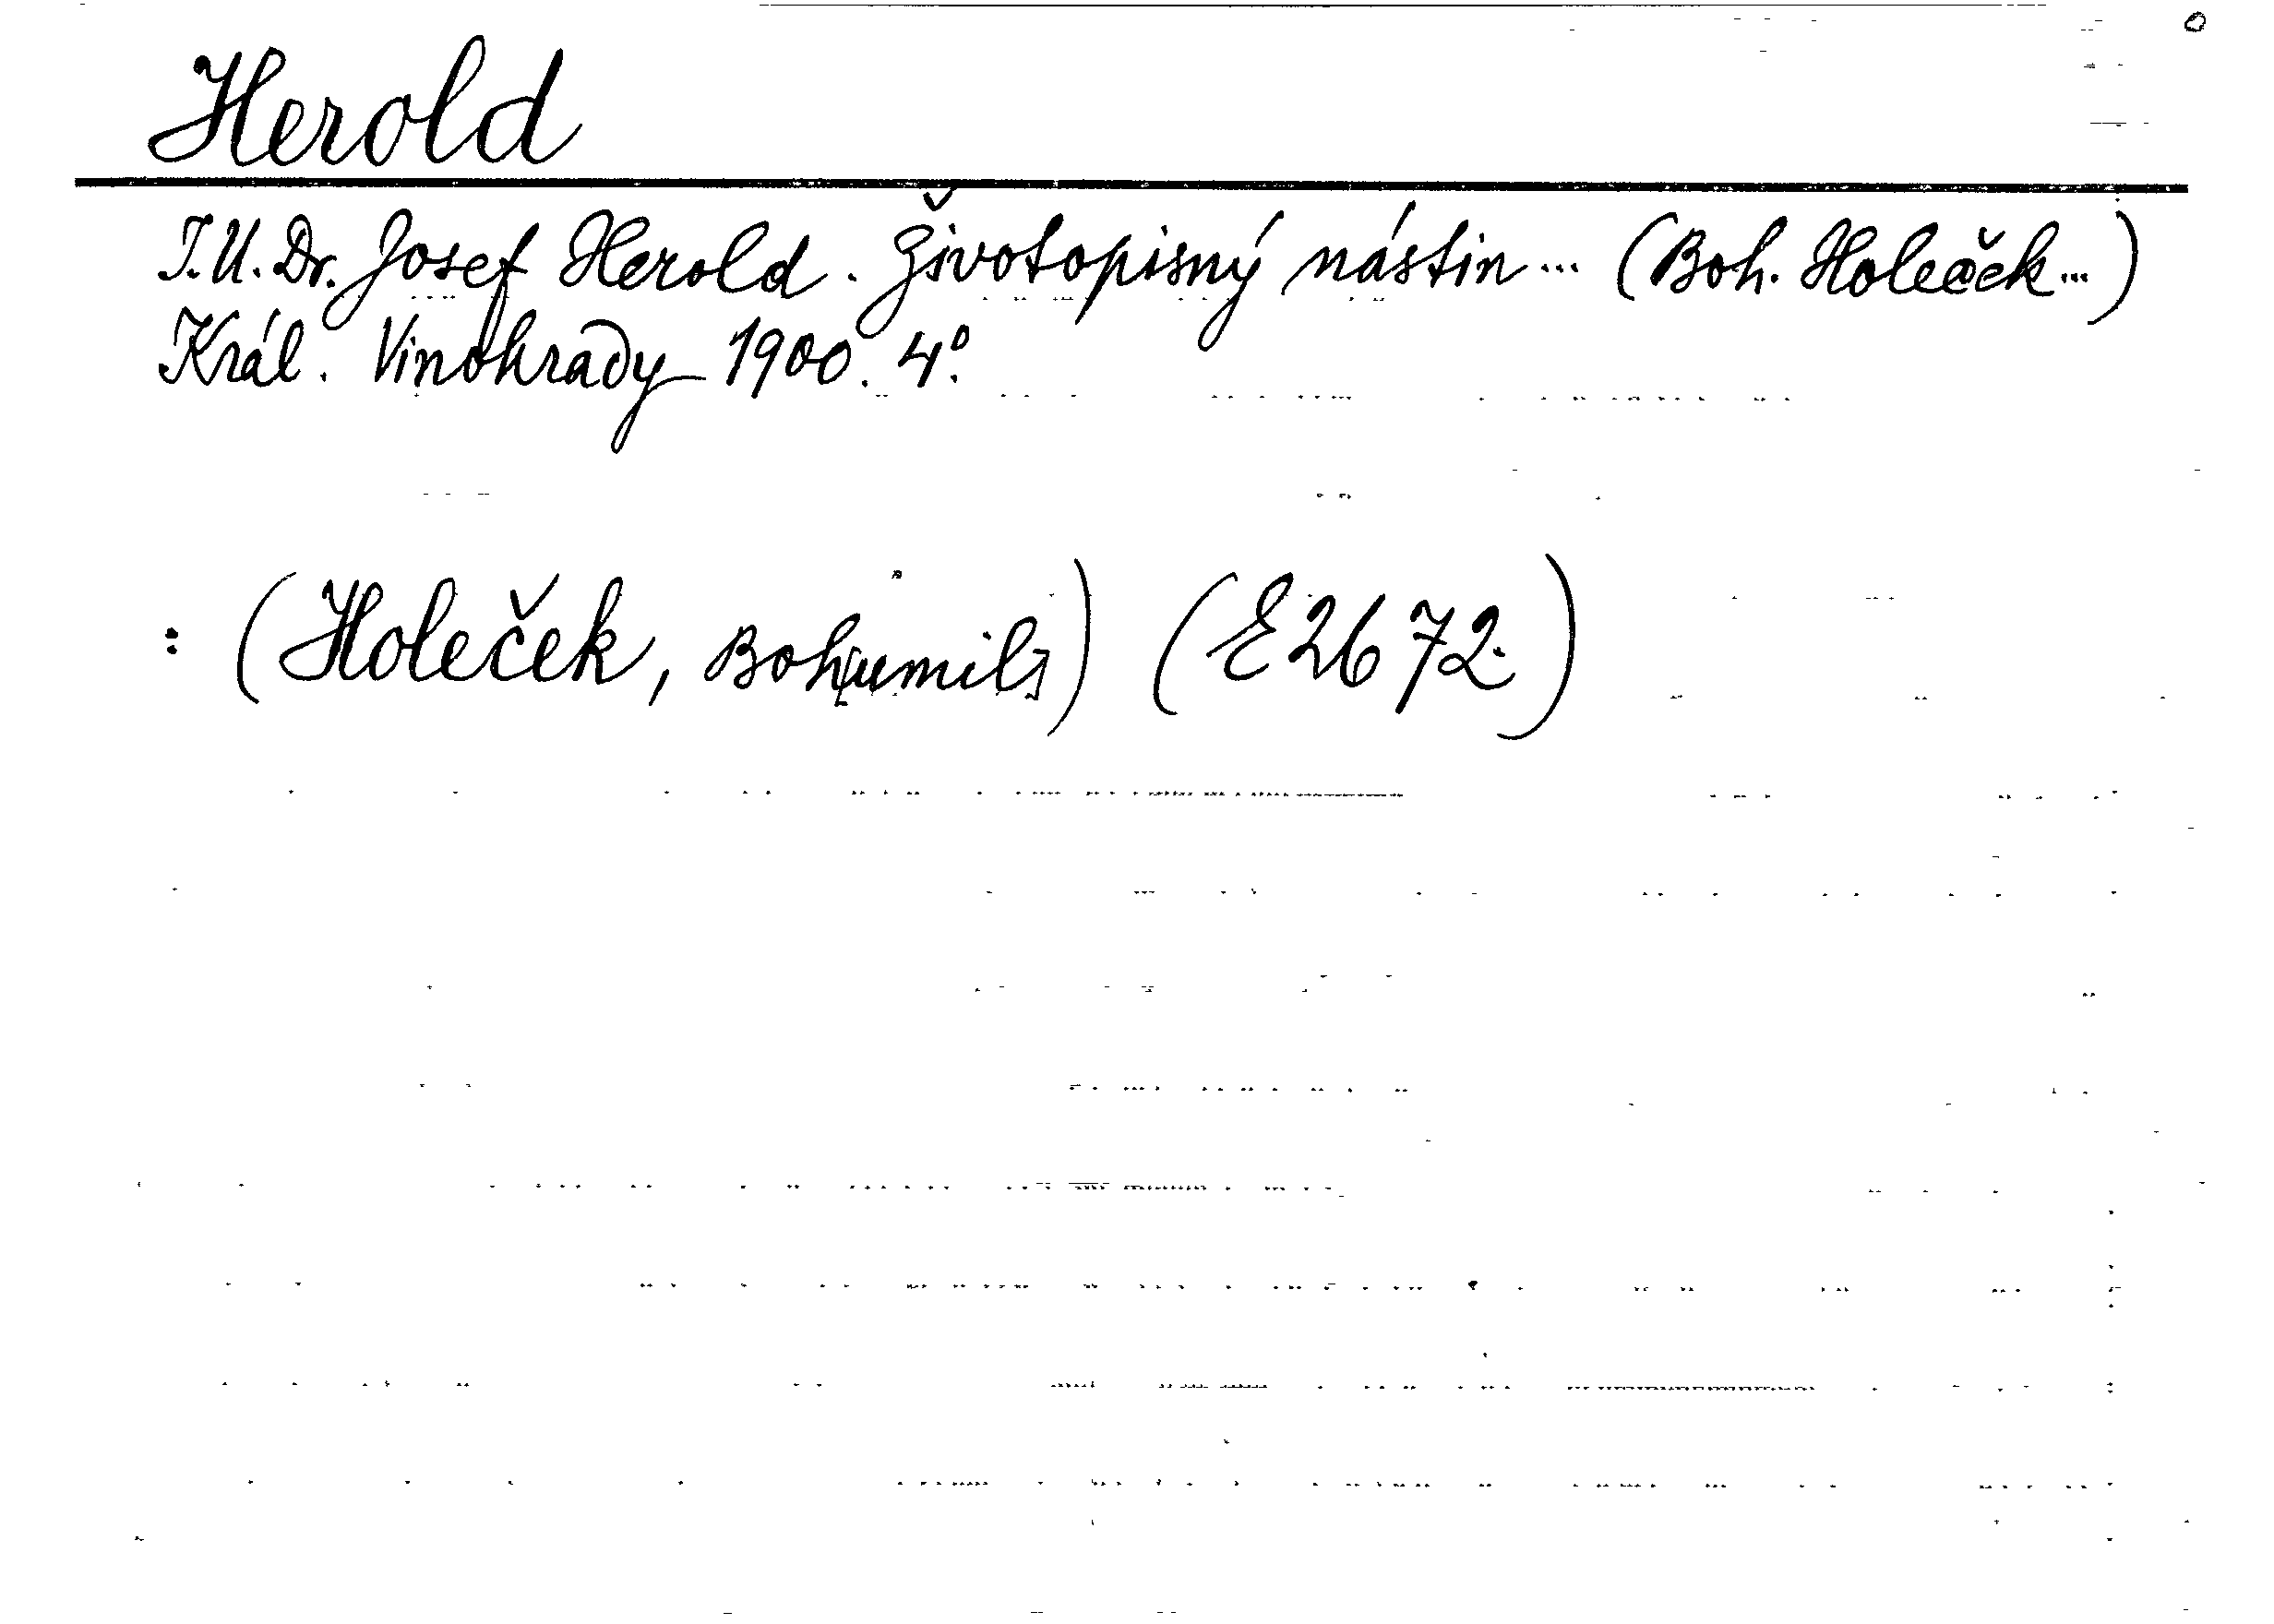 Herold
J.U.Dr. Josef Herold. Životopisný nástin... (Boh. Holeček...)
Král. Vinohrady 1900. 4°.
: (Holeček, Boh[umil]) (E 2672.)